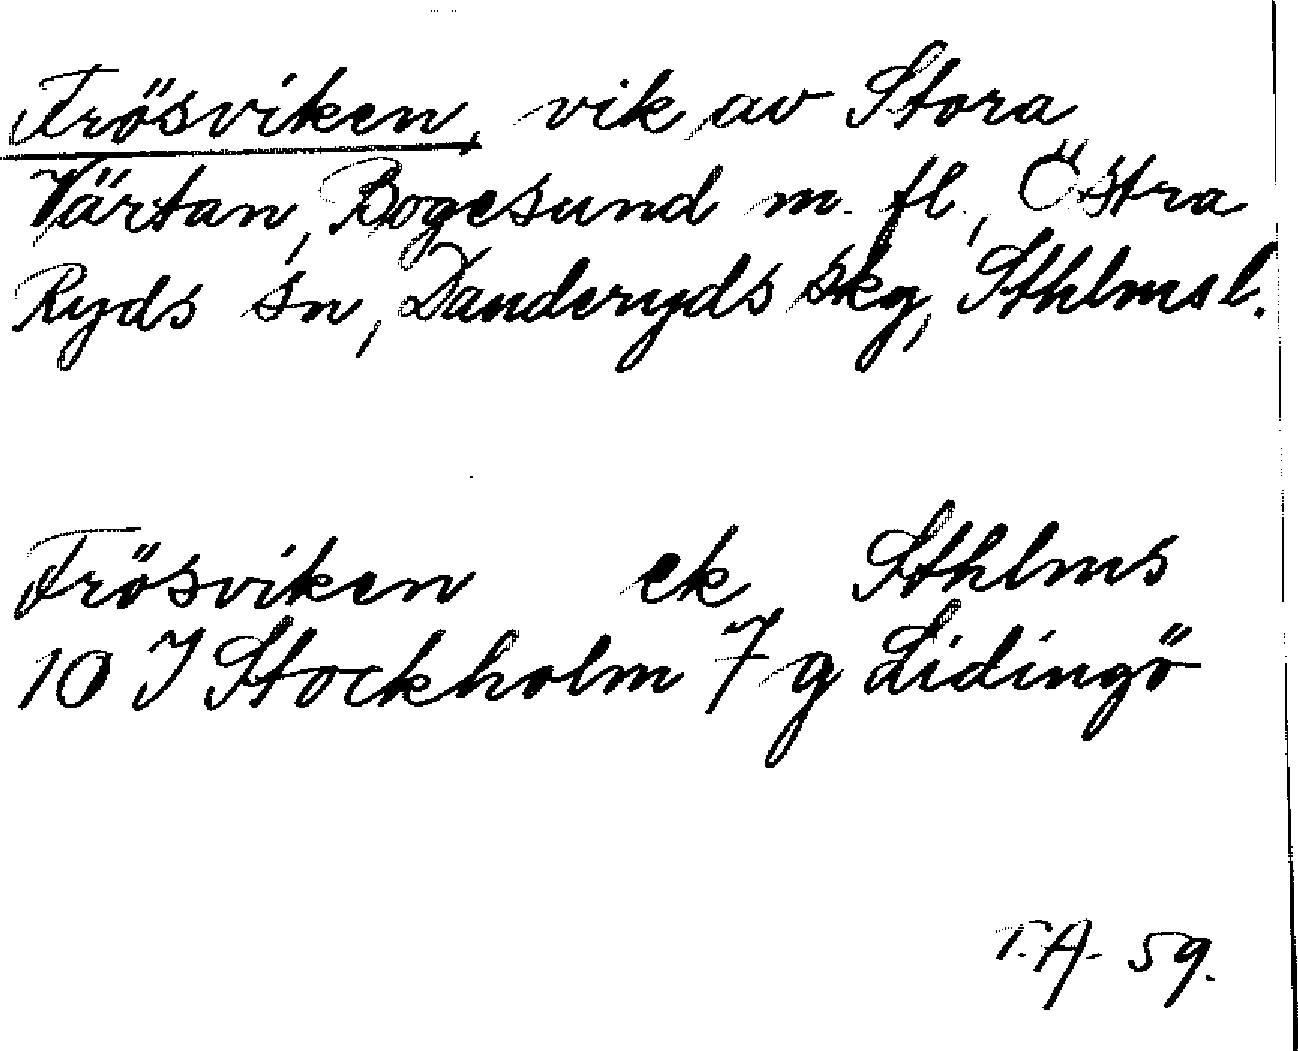 Frösviken, vik av Stora
Värtan, Bogesund m. fl., Östra
Ryds sn, Danderyds skg, Sthlmsl.
Frösviken ek Sthlms
10 I Stockholm 7 g Lidingö
T.A. 59.